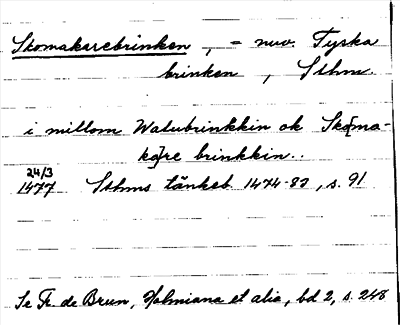 Skomakarebrinken, = nuv. Tyska
brinken, Sthm.
i millom Watubrinkkin ok Sko[ma-
ka]re brinkkin..
24/3
1477 Sthms tänkeb 1474-83, s. 91
Se Fr. de Brun, Holmiana et alia, bd 2, s. 248